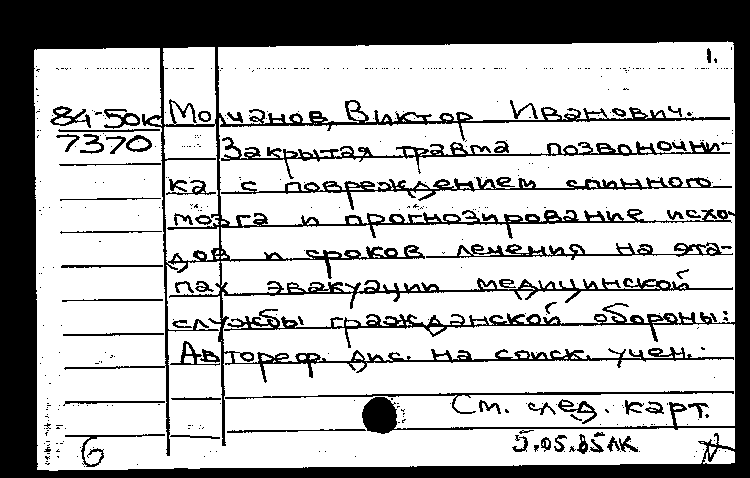 1.
84-50к Молчанов, Виктор Иванович.
7370 Закрытая травма позвоночни-
ка с повреждением спинного
мозга и прогнозирование исхо-
дов и сроков лечения на эта-
пах эвакуации медицинской
службы гражданской обороны:
Автореф. дис. на соиск. учен.
См. след. карт.
5.05.85
6